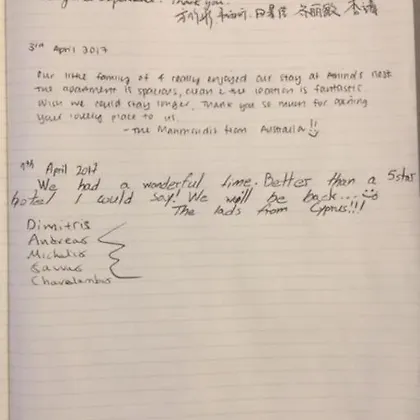 Thank you.
3rd April 2017
Our little family of 4 really enjoyed our stay at Amina's nest
The apartment is spacious, clean & the location is fantastic.
Wish we could stay longer. Thank you so much for opening
your lovely place to us.
- The Mahmoudis from Australia!!
April 2017
We had a wonderful time. Better than a 5star
hotel I would say! We will be back...
The lads from Cyprus!!!
Dimitris
Andreas
Michalis
Savvas
Charalambos